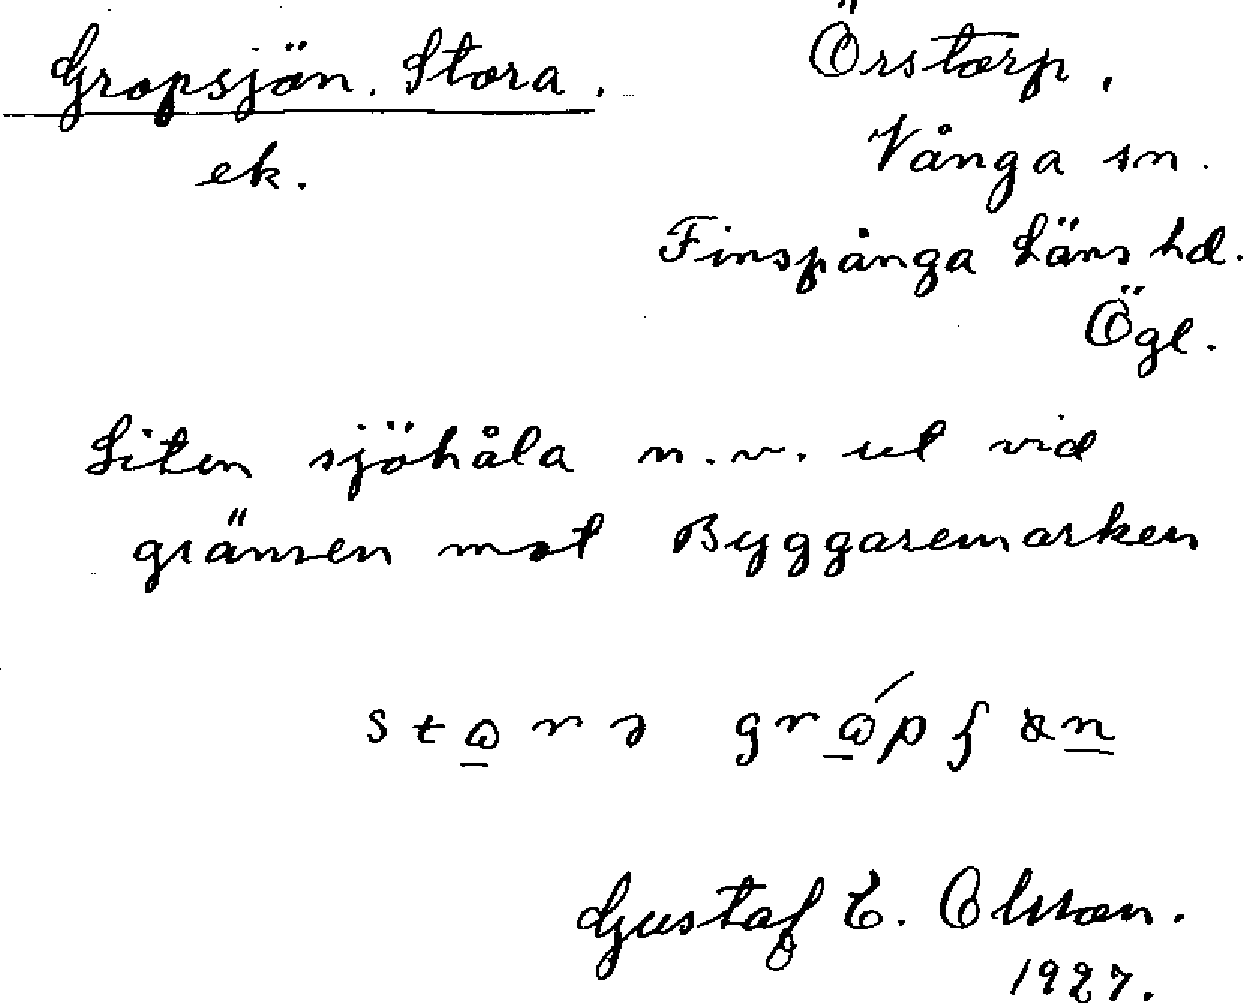 Gropsjön. Stora.
ek.
Örstorp.
Vånga sn.
Finspånga Läns hd.
Ögl.
Liten sjöhåla n.v. ut vid
gränsen mot Byggaremarken
Gustaf E. Olsson.
1927.